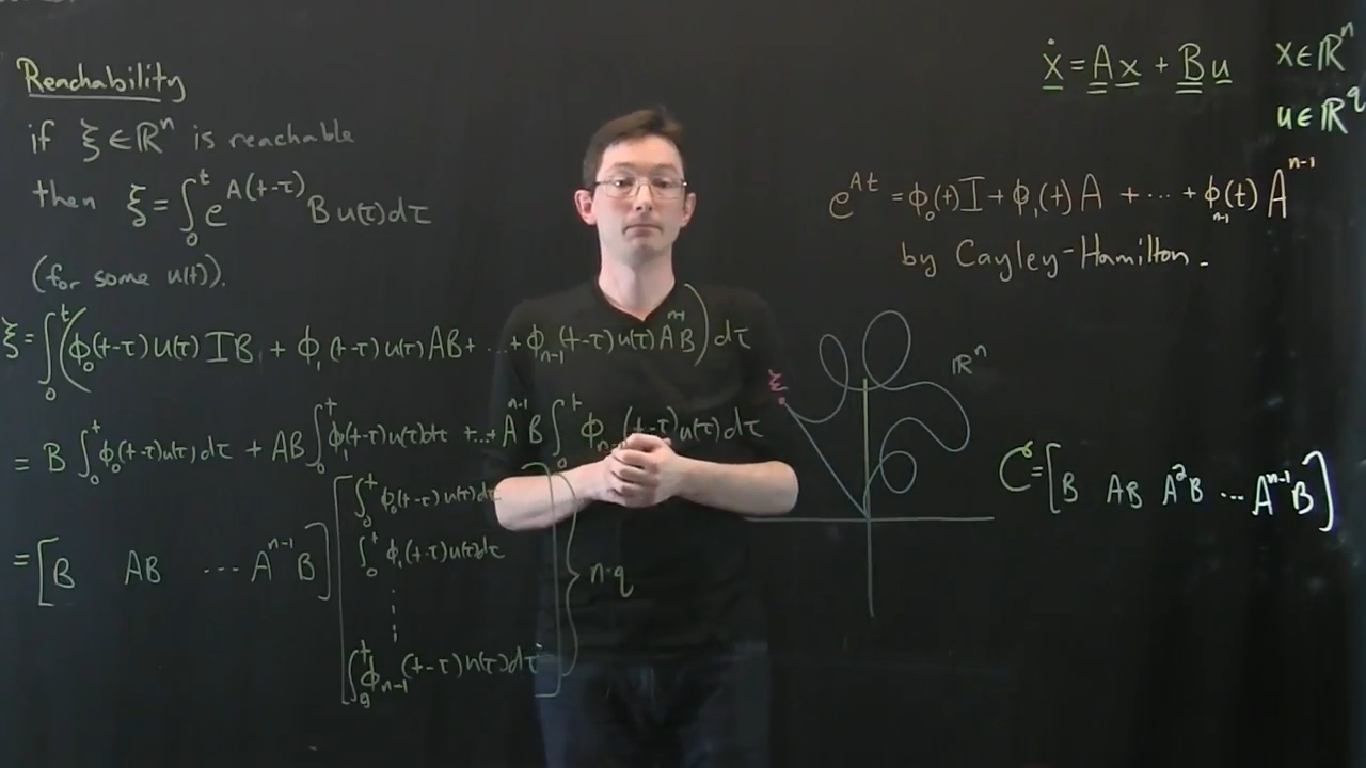 Reachability
if ξ ∈ ℝⁿ is reachable
then ξ = ∫₀ᵗ e^{A(t-τ)} B u(τ) dτ
(for some u(t)).
ξ = ∫₀ᵗ (ϕ₀(t-τ) u(τ) I B + ϕ₁(t-τ) u(τ) AB + ... + ϕₙ₋₁(t-τ) u(τ) Aⁿ⁻¹B) dτ
= B ∫₀ᵗ ϕ₀(t-τ) u(τ) dτ + AB ∫₀ᵗ ϕ₁(t-τ) u(τ) dτ + ... + Aⁿ⁻¹B ∫₀ᵗ ϕₙ₋₁(t-τ) u(τ) dτ
= [B AB ... Aⁿ⁻¹B]
∫₀ᵗ ϕ₀(t-τ) u(τ) dτ
∫₀ᵗ ϕ₁(t-τ) u(τ) dτ
⋮
∫₀ᵗ ϕₙ₋₁(t-τ) u(τ) dτ
n·q
ẋ = A x + B u
x ∈ ℝⁿ
u ∈ ℝ^q
e^{At} = ϕ₀(t) I + ϕ₁(t) A + ... + ϕₙ₋₁(t) Aⁿ⁻¹
by Cayley-Hamilton.
ξ
ℝⁿ
C = [B AB A²B ... Aⁿ⁻¹B]